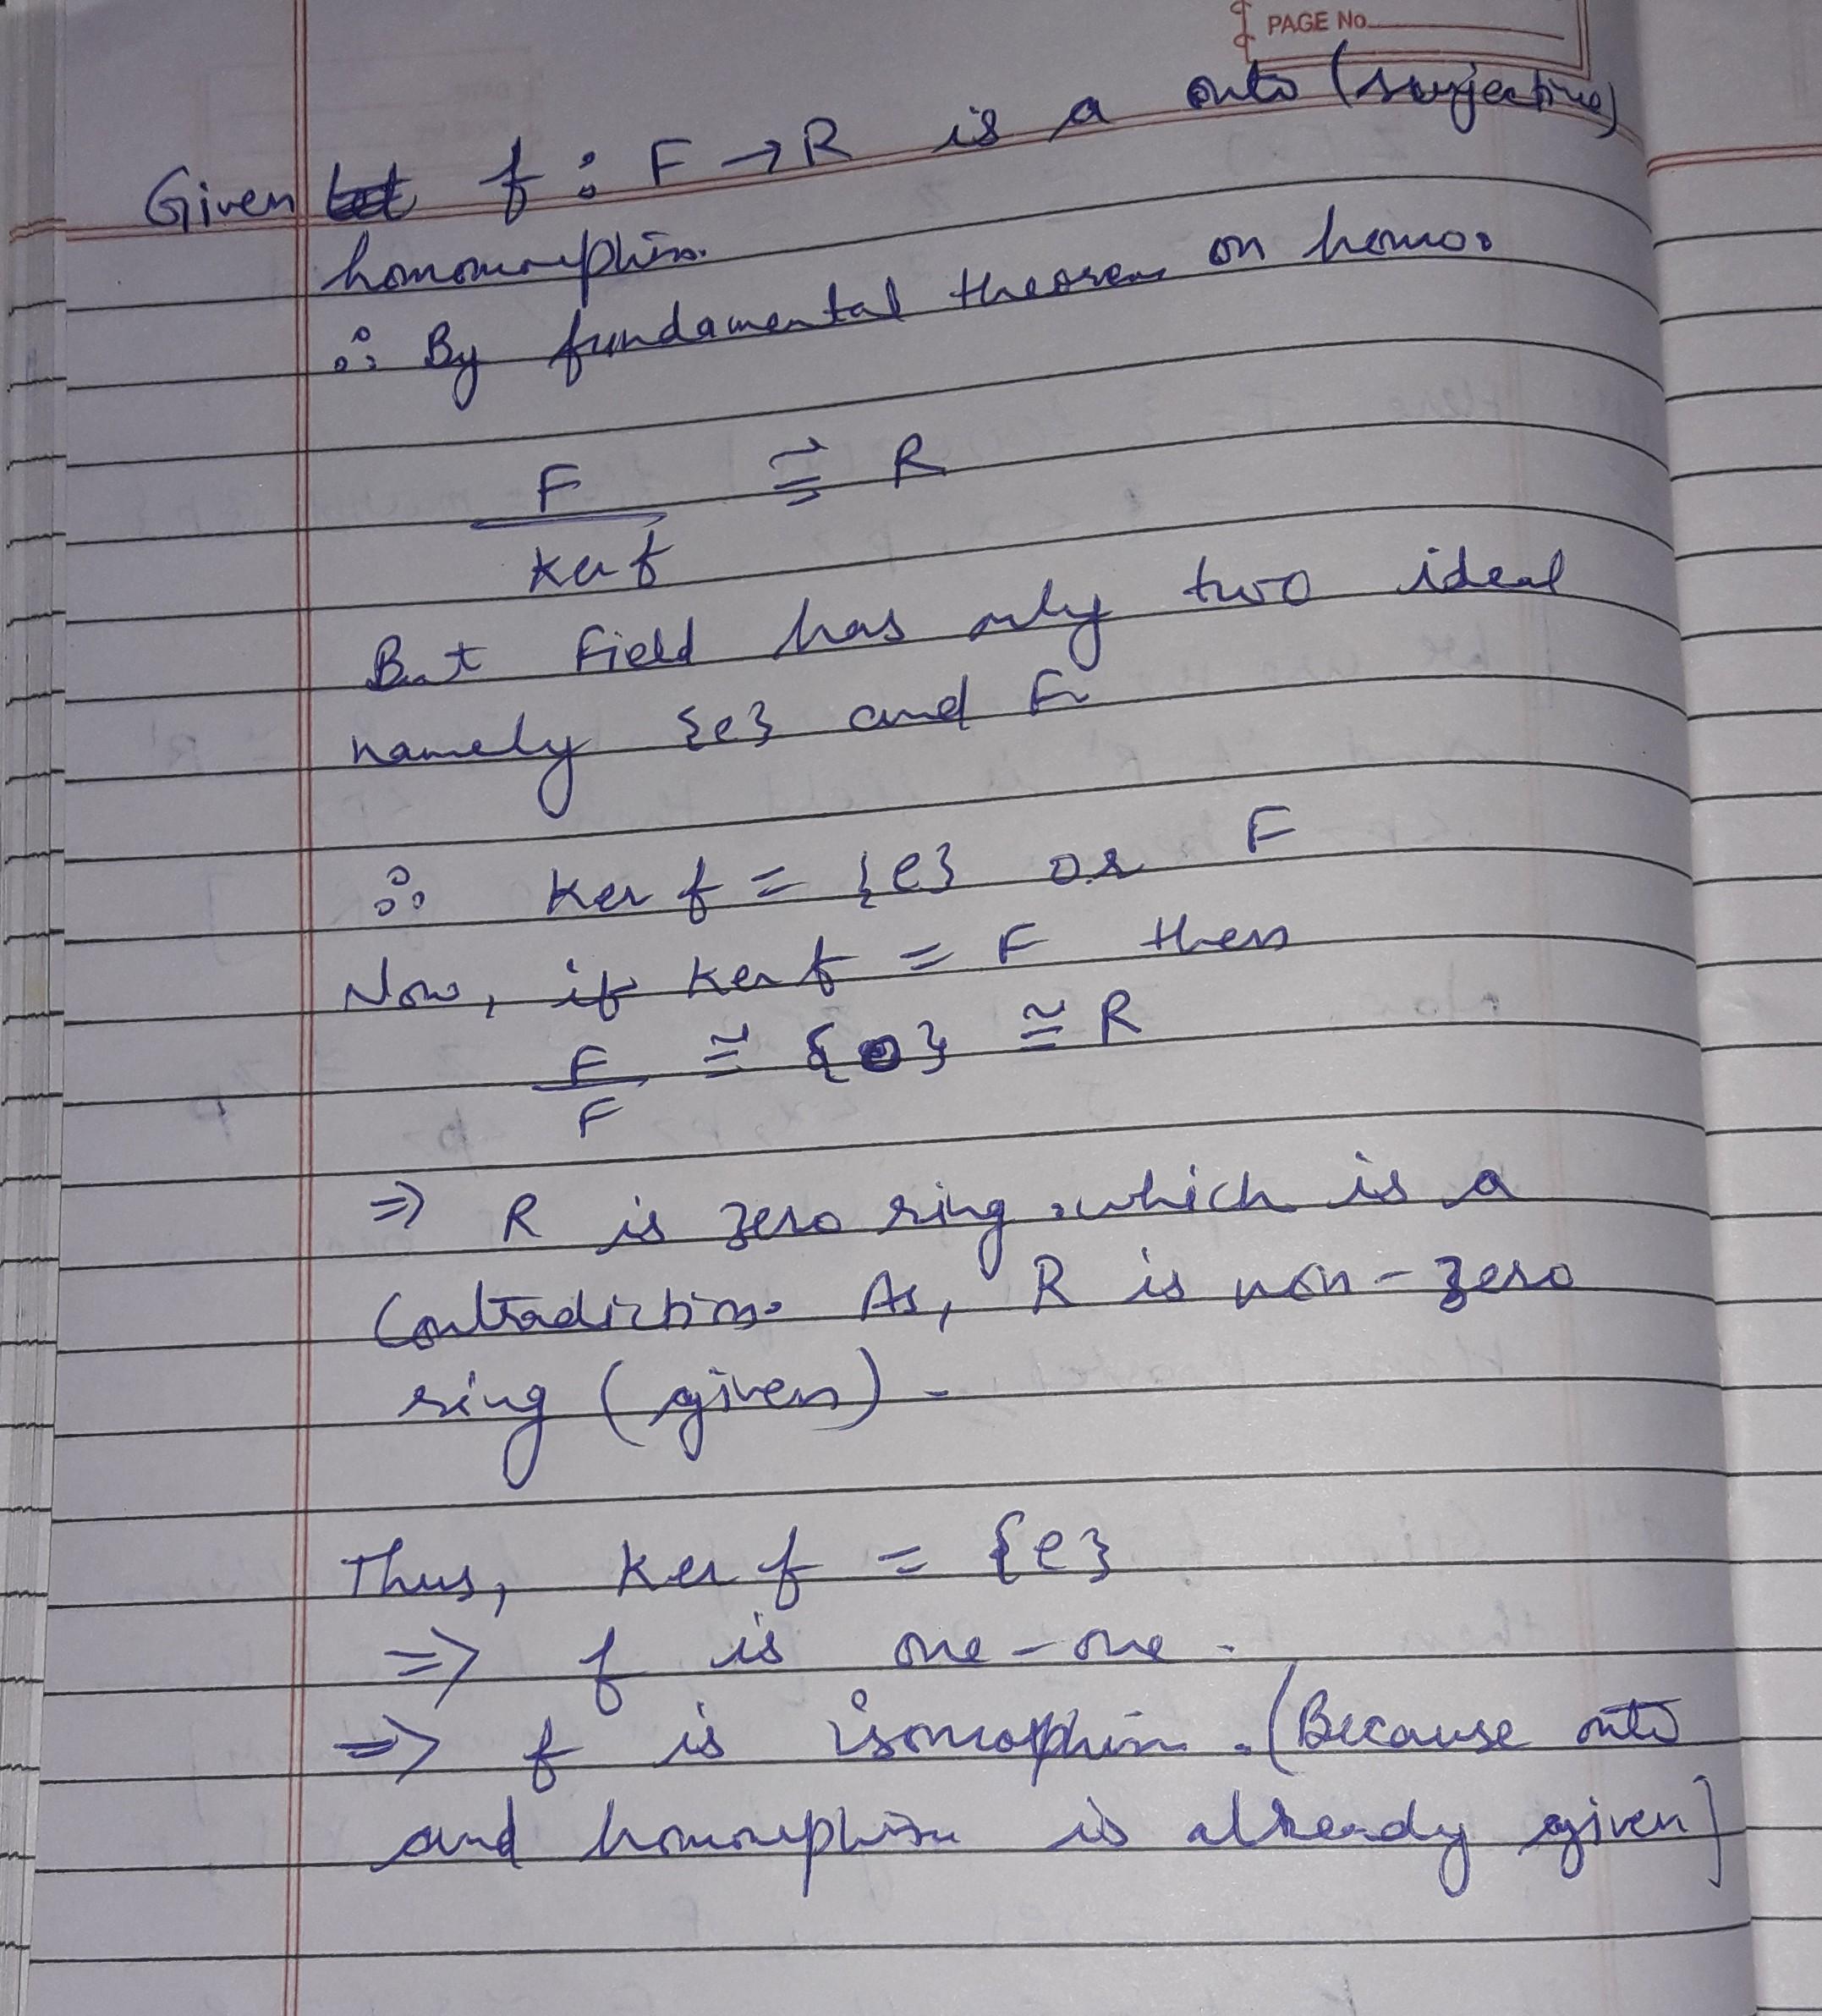 PAGE No.
Given let f : F → R is a onto (surjective)
homomorphism.
∴ By fundamental theorem on homo.
F/ker f ≅ R
But field has only two ideal
namely {e} and F.
∴ Ker f = {e} or F
Now, if ker f = F then
F/F ≅ {0} ≅ R
⇒ R is zero ring. which is a
Contradiction. As, R is non-zero
ring (given).
Thus, ker f = {e}
⇒ f is one-one.
⇒ f is isomorphism. (Because onto
and homomorphism is already given]